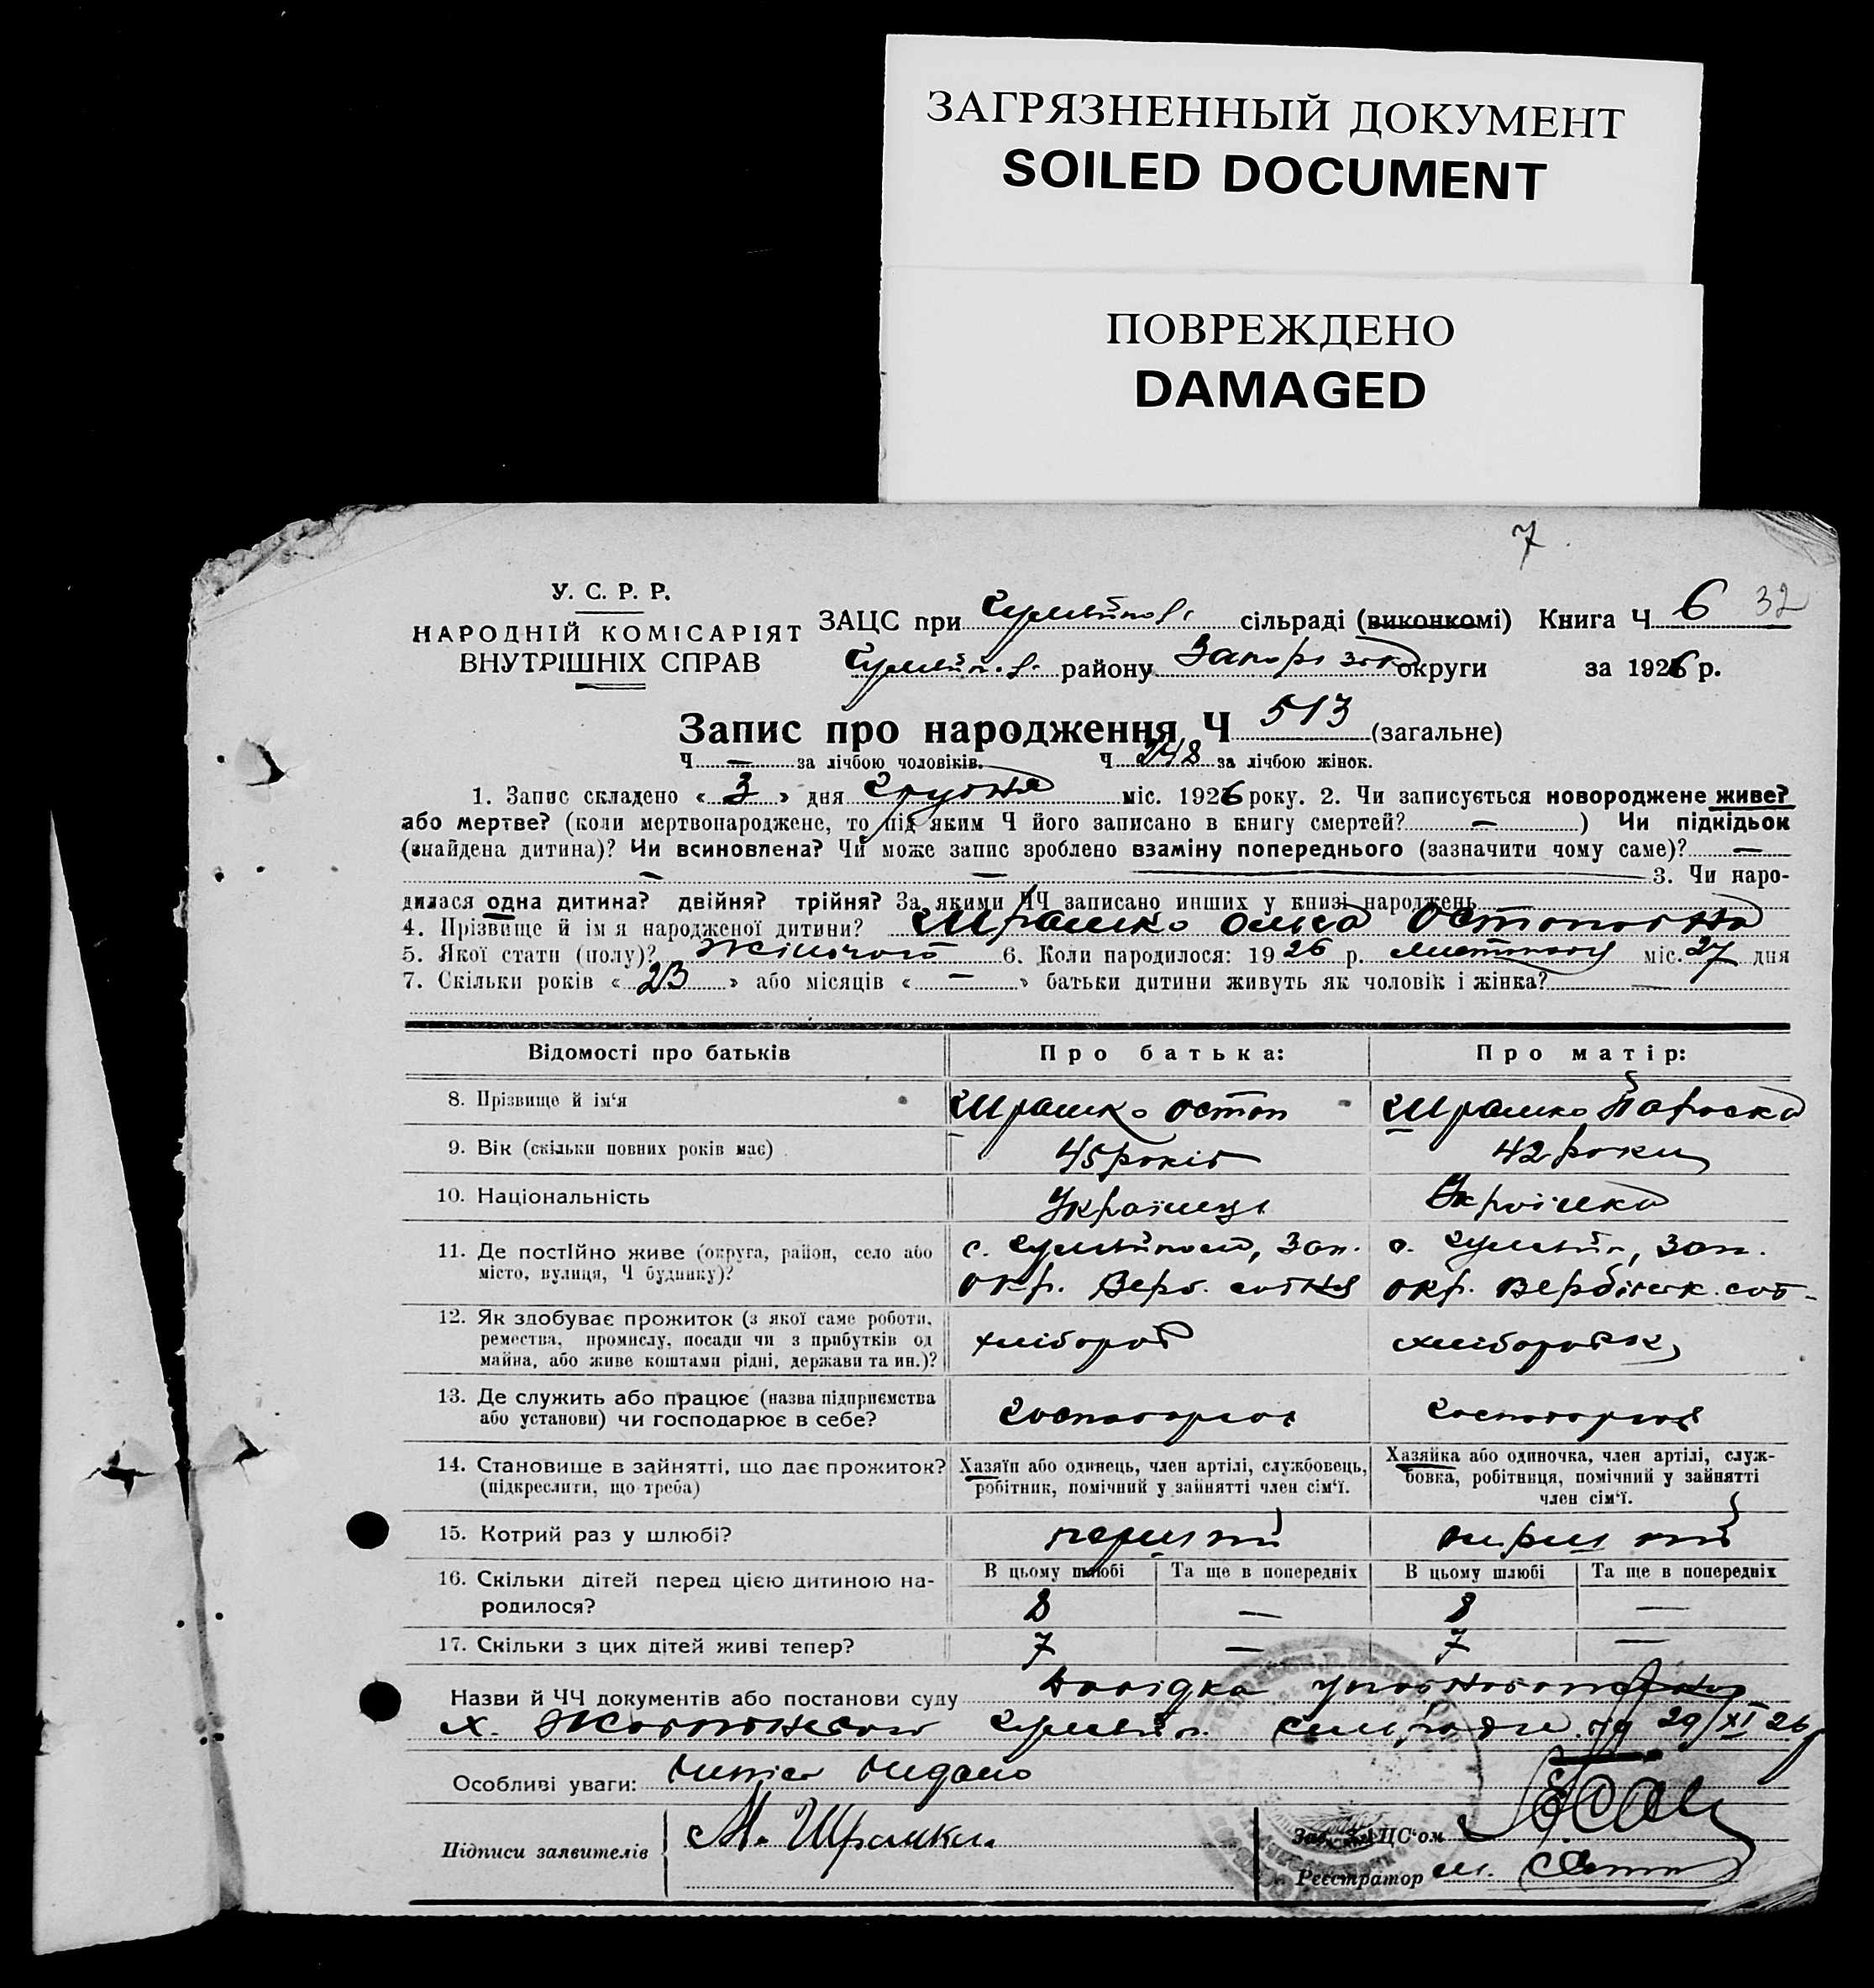 ЗАГРЯЗНЕННЫЙ ДОКУМЕНТ
SOILED DOCUMENT
ПОВРЕЖДЕНО
DAMAGED
7
У. С. Р. Р.
НАРОДНІЙ КОМІСАРІЯТ
ВНУТРІШНІХ СПРАВ
ЗАЦС при сільраді (виконкомі) Книга Ч 6 32
району округи за 1926 р.
Запис про народження Ч 513 (загальне)
Ч — за лічбою чоловіків. Ч 248 за лічбою жінок.
1. Запис складено « 3 » дня Грудня міс. 1926 року. 2. Чи записується новороджене живе?
або мертве? (коли мертвонароджене, то під яким Ч його записано в книгу смертей? — ) Чи підкідьок
(знайдена дитина)? Чи всиновлена? Чи може запис зроблено взаміну попереднього (зазначити чому саме)? —
— — 3. Чи наро-
дилася одна дитина? двійня? трійня? За якими ЧЧ записано инших у книзі народжень
4. Прізвище й імя народженої дитини? Шрамко Ольга Остаповна
5. Якої стати (полу)? Жіночого 6. Коли народилося: 1926 р. листопада міс. 27 дня
7. Скільки років « 23 » або місяців « — » батьки дитини живуть як чоловік і жінка? —
Відомості про батьків Про батька: Про матір:
8. Прізвище й ім'я Шрамко Остап Шрамко Параска
9. Вік (скільки повних років має) 45 років 42 роки
10. Національність Українець Українка
11. Де постійно живе (округа, район, село або с. Гуляйполе, Зап. с. Гуляйп., Зап.
місто, вулиця, Ч будинку)? окр. Верб. сотня окр. Вербівськ. сот-
12. Як здобуває прожиток (з якої саме роботи,
ремества, промислу, посади чи з прибутків од хлібороб
майна, або живе коштами рідні, держави та ин.)?
13. Де служить або працює (назва підприємства
або установи) чи господарює в себе? господарює господарює
14. Становище в зайнятті, що дає прожиток? Хазяїн або одинець, член артілі, службовець, Хазяйка або одиночка, член артілі, служ-
(підкреслити, що треба) робітник, помічний у зайнятті член сім'ї. бовка, робітниця, помічний у зайнятті
член сім'ї.
15. Котрий раз у шлюбі? перший перший
16. Скільки дітей перед цією дитиною на- В цьому шлюбі Та ще в попередніх В цьому шлюбі Та ще в попередніх
родилося? 8 — 8 —
17. Скільки з цих дітей живі тепер? 7 — 7 —
Назви й ЧЧ документів або постанови суду Довідка
29/XI 26
Особливі уваги:
Підписи заявителів М. Шрамко
Зав. ЗАЦС'ом
Реєстратор